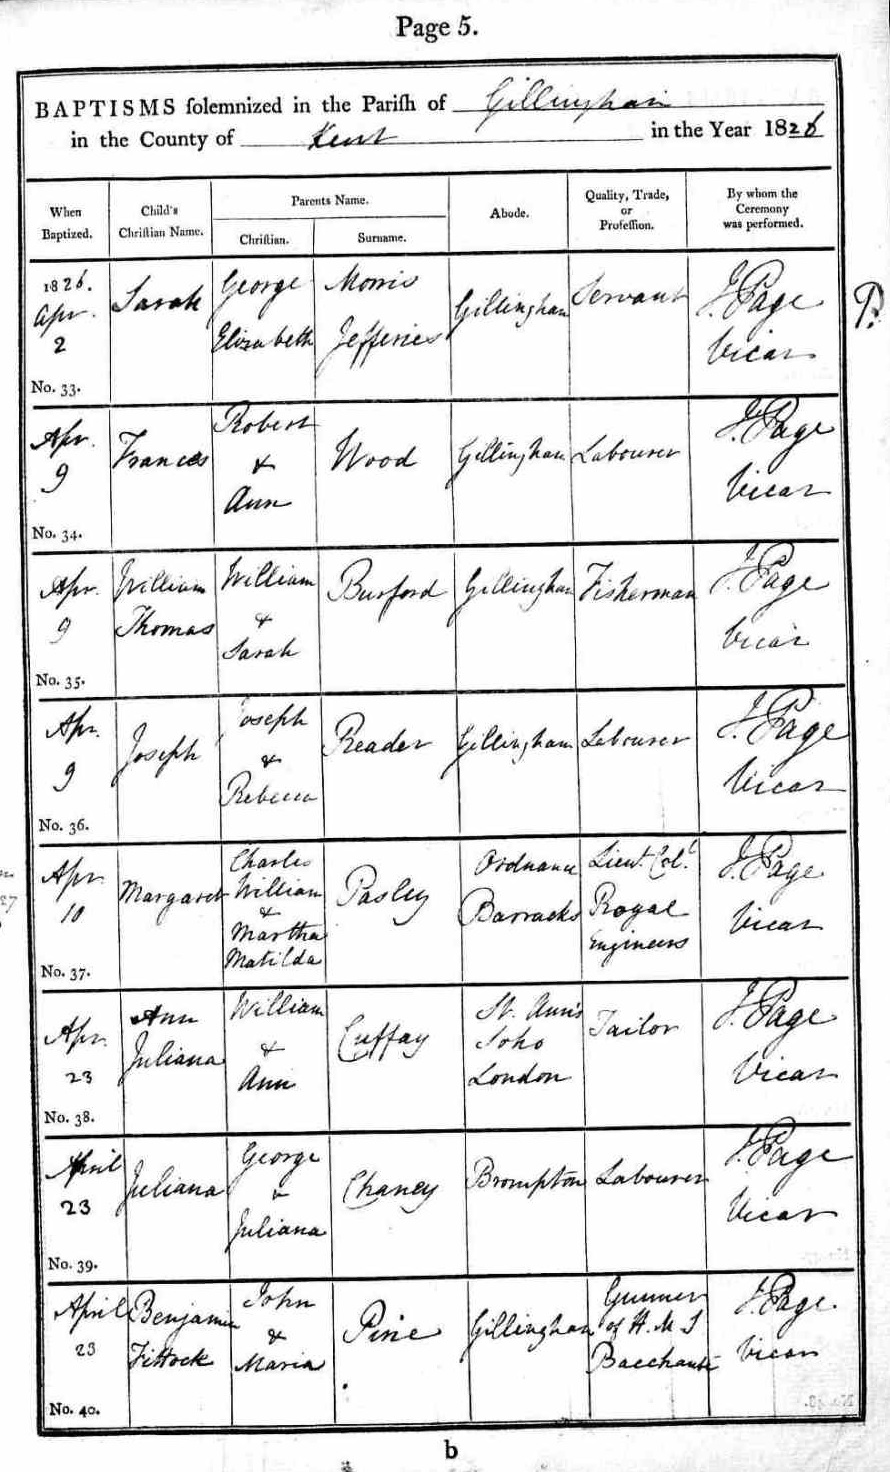 Page 5.
BAPTISMS solemnized in the Parish of Gillingham
in the County of Kent in the Year 1826
When
Baptized.
Child's
Christian Name.
Parents Name.
Christian.
Surname.
Abode.
Quality, Trade,
or
Profession.
By whom the
Ceremony
was performed.
1826.
Apr.
2
No. 33.
Sarah
George
Elizabeth
Morris
Jefferies
Gillingham
Servant
J. Page
Vicar
P.
Apr.
9
No. 34.
Frances
Robert
&
Ann
Wood
Gillingham
Labourer
J. Page
Vicar
Apr.
9
No. 35.
William
Thomas
William
&
Sarah
Burford
Gillingham
Fisherman
J. Page
Vicar
Apr.
9
No. 36.
Joseph
Joseph
&
Rebecca
Reader
Gillingham
Labourer
J. Page
Vicar
Apr.
10
No. 37.
Margaret
Charles
William
&
Martha
Matilda
Pasley
Ordnance
Barracks
Lieut. Col.
Royal
Engineers
J. Page
Vicar
Apr.
23
No. 38.
Ann
Juliana
William
&
Ann
Cuffay
St. Ann's
Soho
London
Tailor
J. Page
Vicar
April
23
No. 39.
Juliana
George
&
Juliana
Chaney
Brompton
Labourer
J. Page
Vicar
April
23
No. 40.
Benjamin
Fittock
John
&
Maria
Pine
Gillingham
Gunner
of H.M.S
Bacchante
J. Page
Vicar
b